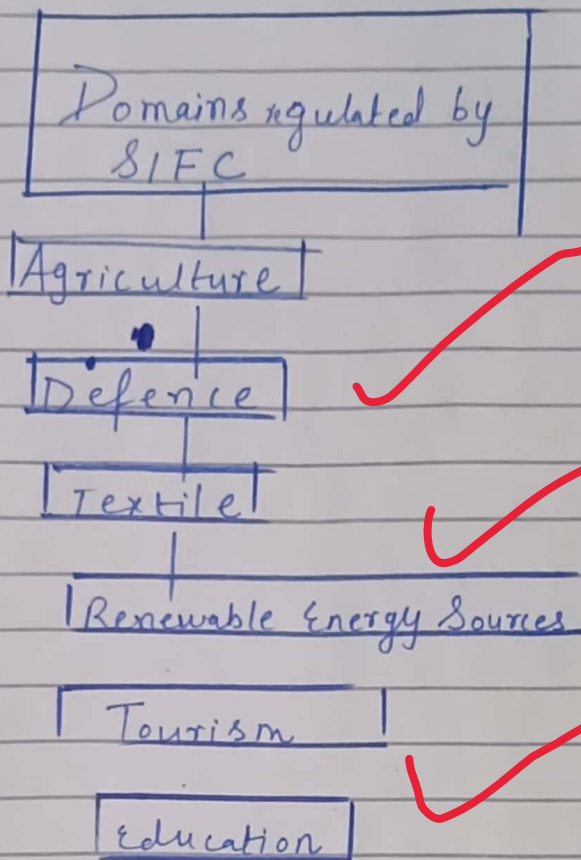 Domains regulated by
SIFC
Agriculture
Defence
Textile
Renewable Energy Sources
Tourism
Education